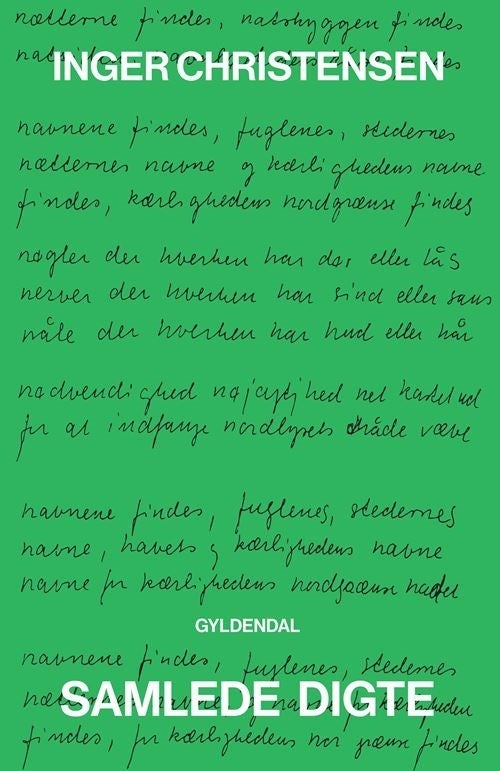 nætterne findes, natskyggen findes
INGER CHRISTENSEN
navnene findes, fuglenes, stedernes
nætternes navne og kærlighedens navne
findes, kærlighedens nordgrænse findes
nøgler der hverken har dør eller lås
nerver der hverken har sind eller sans
nåle der hverken har hud eller hår
nødvendighed nøjagtighed net kastet ud
for at indfange nordlysets tråde væve
navnene findes, fuglenes, stedernes
navne, havets og kærlighedens navne
navne for kærlighedens nordgrænse
GYLDENDAL
navnene findes, fuglenes, stedernes
SAMLEDE DIGTE
findes, for kærlighedens nor grænse findes